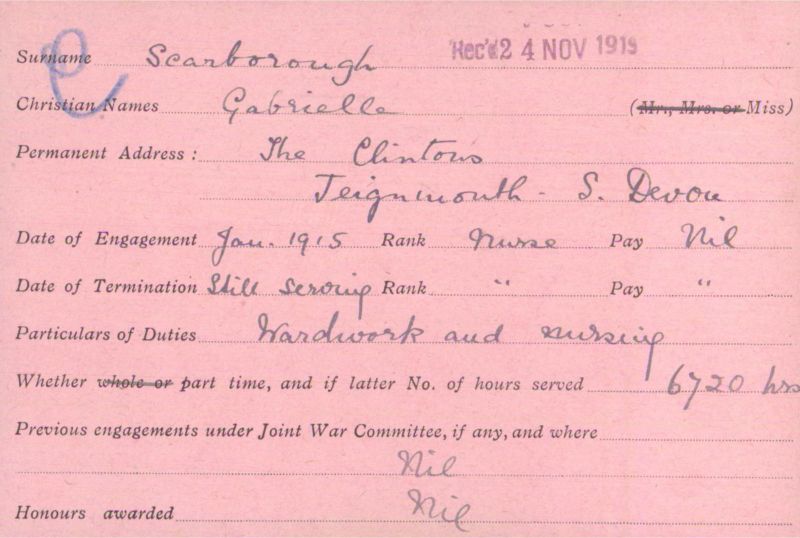 Rec'd 24 NOV 1919
Surname Scarborough
Christian Names Gabrielle (Mr., Mrs. or Miss)
Permanent Address : The Clintons
Teignmouth - S. Devon
Date of Engagement Jan. 1915 Rank Nurse Pay Nil
Date of Termination Still serving Rank " Pay "
Particulars of Duties Wardwork and nursing
Whether whole or part time, and if latter No. of hours served 6720 hrs
Previous engagements under Joint War Committee, if any, and where
Nil
Honours awarded Nil